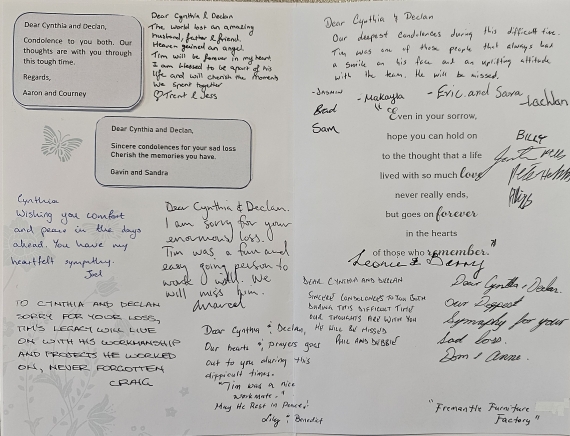 Dear Cynthia and Declan,
Condolence to you both. Our
thoughts are with you through
this tough time.
Regards,
Aaron and Courney
Dear Cynthia & Declan
The world lost an amazing
husband, father & friend.
Heaven gained an angel.
Tim will be forever in my heart
I am blessed to be apart of his
life and will cherish the moments
we spent together
Trent & Jess
Dear Cynthia and Declan,
Sincere condolences for your sad loss
Cherish the memories you have.
Gavin and Sandra
Cynthia
Wishing you comfort
and peace in the days
ahead. You have my
heartfelt sympathy.
Joel
Dear Cynthia & Declan.
I am sorry for your
enormous loss.
Tim was a fun and
easy going person to
work with. We
will miss him.
Marcel
TO CYNTHIA AND DECLAN
SORRY FOR YOUR LOSS,
TIM'S LEGACY WILL LIVE
ON WITH HIS WORKMANSHIP
AND PROJECTS HE WORKED
ON, NEVER FORGOTTEN
CRAIG
Dear Cynthia & Declan,
Our hearts & prayers goes
out to you during this
difficult times.
"Tim was a nice
workmate."
May He Rest in Peace!
Liley & Benedict
Dear Cynthia & Declan
Our deepest condolences during this difficult time.
Tim was one of those people that always had
a smile on his face and an uplifting attitude
with the team. He will be missed.
-JASMIN
-Makayla
-Eric and Sara
-Lachlan
Brad
Sam
"Even in your sorrow,
hope you can hold on
to the thought that a life
lived with so much love
never really ends,
but goes on forever
in the hearts
of those who remember."
BILLY
Leonie & Gerry
DEAR CYNTHIA AND DECLAN
SINCERE CONDOLENCES TO YOU BOTH
DURING THIS DIFFICULT TIME
OUR THOUGHTS ARE WITH YOU
HE WILL BE MISSED
PHIL AND DEBBIE
Dear Cynthia & Declan.
Our Deepest
Sympathy for your
sad loss.
Dom & Anne.
"Fremantle Furniture
Factory"